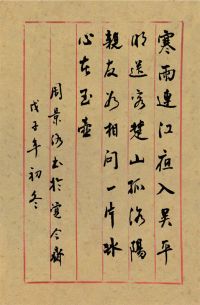 寒雨連江夜入吳平
明送客楚山孤洛陽
親友如相問一片冰
心在玉壺
周景书於今齋
戊子年初冬